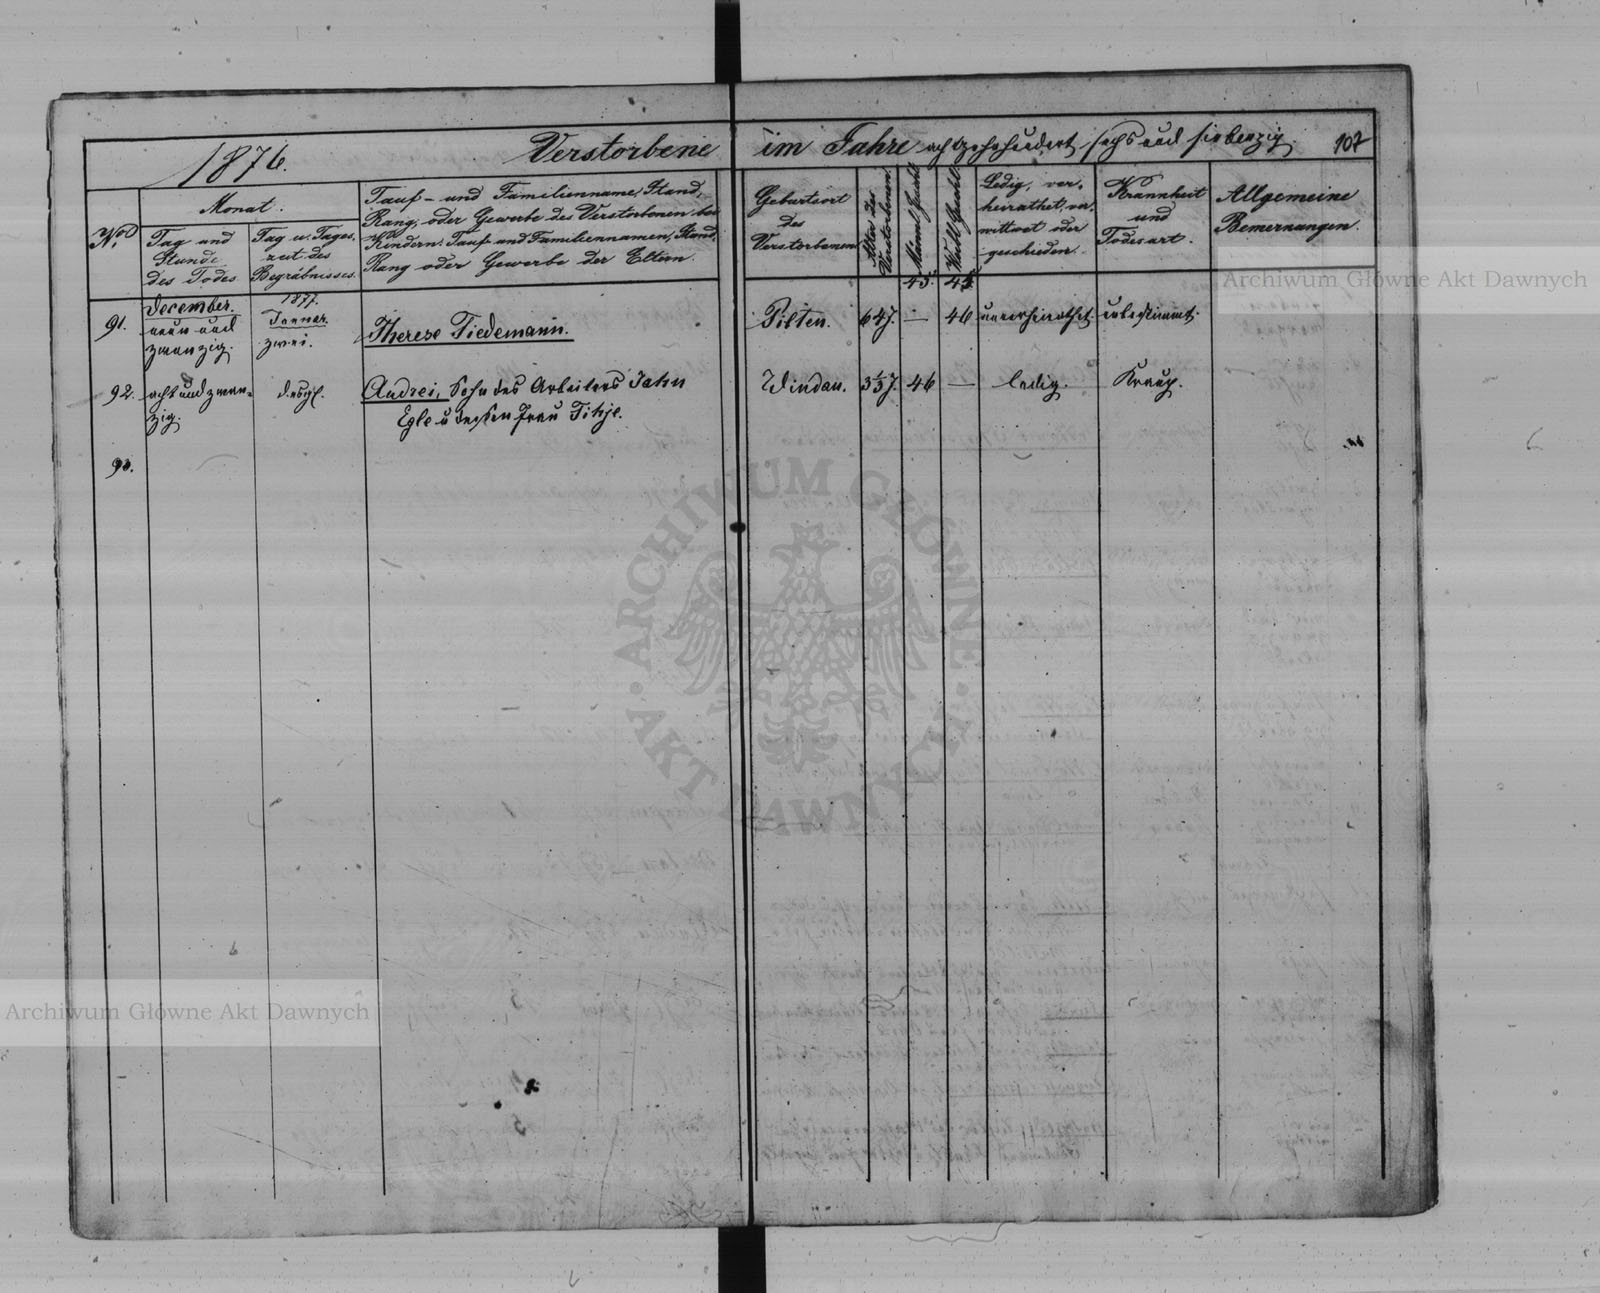 1876.
Verstorbene im Jahre achtzehnhundert sechs und siebenzig.
107
No.
Monat.
Tag und
Stunde
des Todes
Tag u. Tages-
zeit des
Begräbnisses.
Tauf- und Familienname, Stand,
Rang, oder Gewerbe des Verstorbenen bei
Kindern: Tauf und Familiennamen, Stand,
Rang oder Gewerbe der Eltern.
Geburtsort
des
Verstorbenen
Alter des
Verstorbenen.
Männl. Geschl.
Weibl. Geschl.
Ledig, ver-
heirathet, ver-
wittwet oder
geschieden.
Krannheit
und
Todesart.
Allgemeine
Bemernungen.
45. 45.
91.
December.
neun und
zwanzig.
1877.
Januar.
zwei.
Therese Tiedemann.
Pilten.
64 J.
—
46
unverheirathet.
unbestimmt.
92.
acht und zwan-
zig.
desgl.
Andrei, Sohn des Arbeiters Jahn
Egle u dessen Frau Tihje.
Windau.
46
—
ledig.
Kraup.
93.
ARCHIWUM GŁÓWNE AKT DAWNYCH
Archiwum Główne Akt Dawnych
Archiwum Główne Akt Dawnych